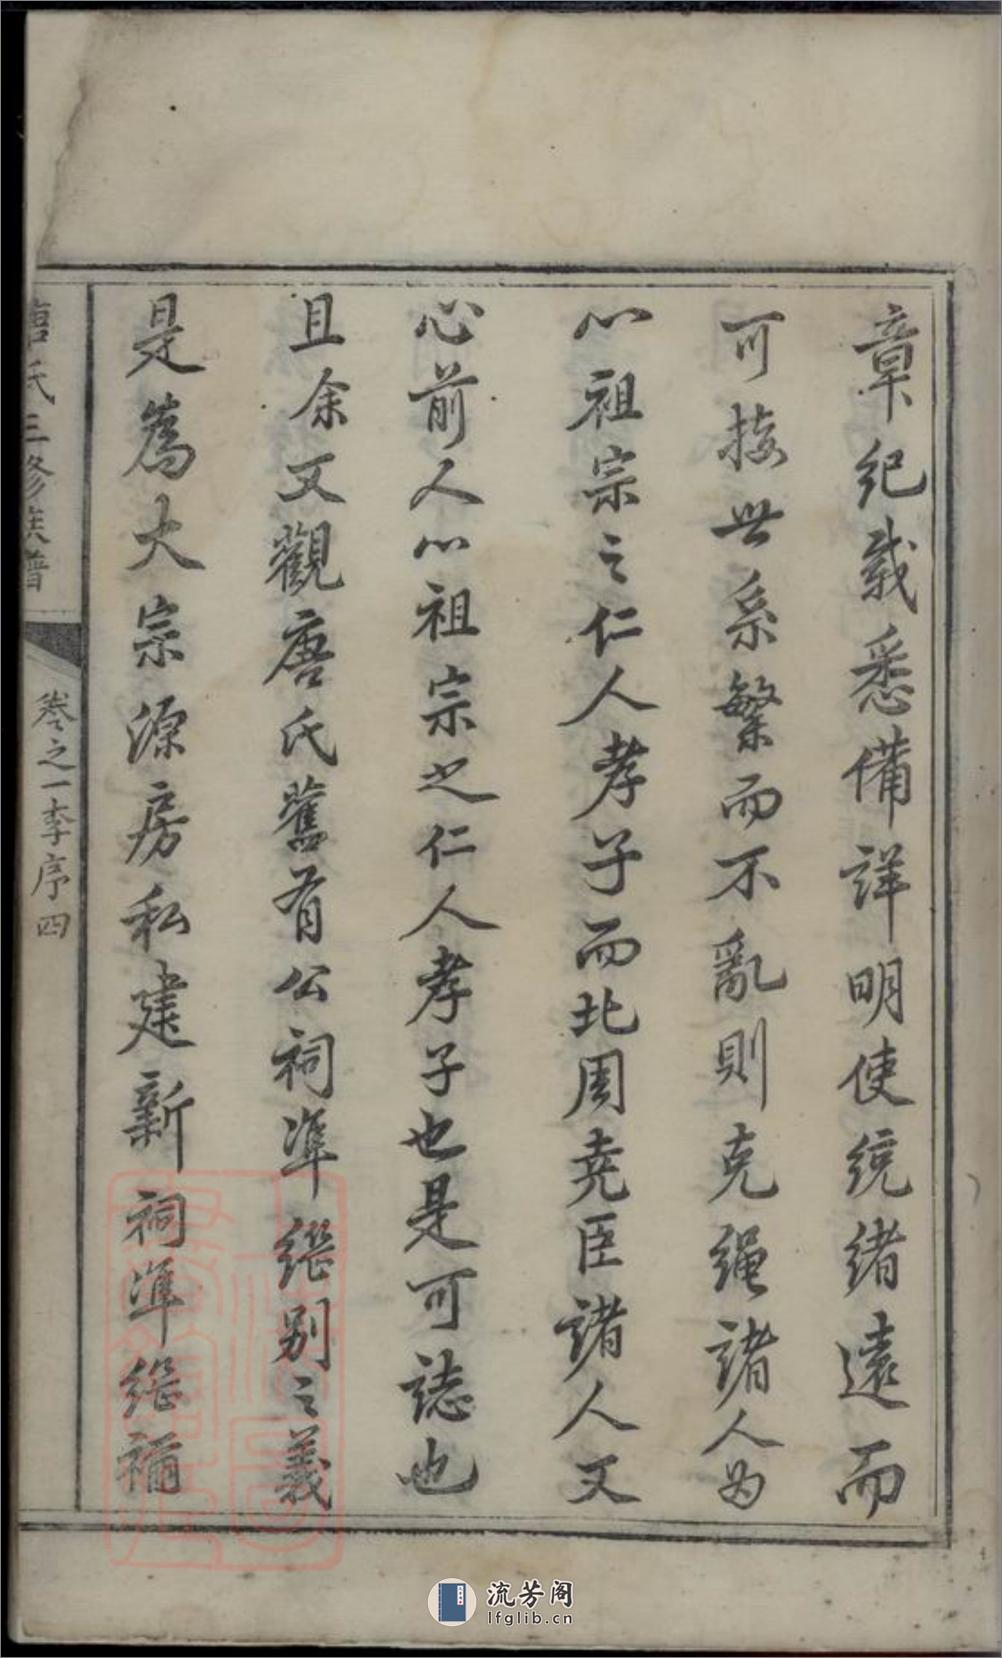 章紀載悉備詳明使統緒遠而
可接世系繁而不亂則克繩諸人为
心祖宗之仁人孝子而北周堯臣諸人又
心前人心祖宗之仁人孝子也是可誌也
且余又觀唐氏舊有公祠準繼别之義
是為大宗源房私建新祠準繼禰
唐氏三修族譜
卷之一李序四
流芳阁
lfglib.cn